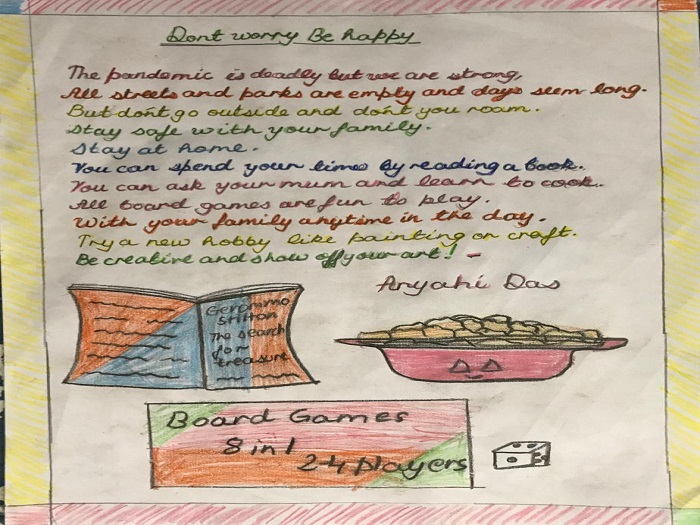 Dont worry Be happy
The pandemic is deadly but we are strong,
All streets and parks are empty and days seem long.
But don't go outside and don't you roam.
Stay safe with your family.
Stay at home.
You can spend your time by reading a book.
You can ask your mum and learn to cook.
All board games are fun to play.
With your family anytime in the day.
Try a new hobby like painting or craft.
Be creative and show off your art! -
Aryahi Das
Geronimo
Stilton
The search
for
treasure
Board Games
8 in 1
2-4 players